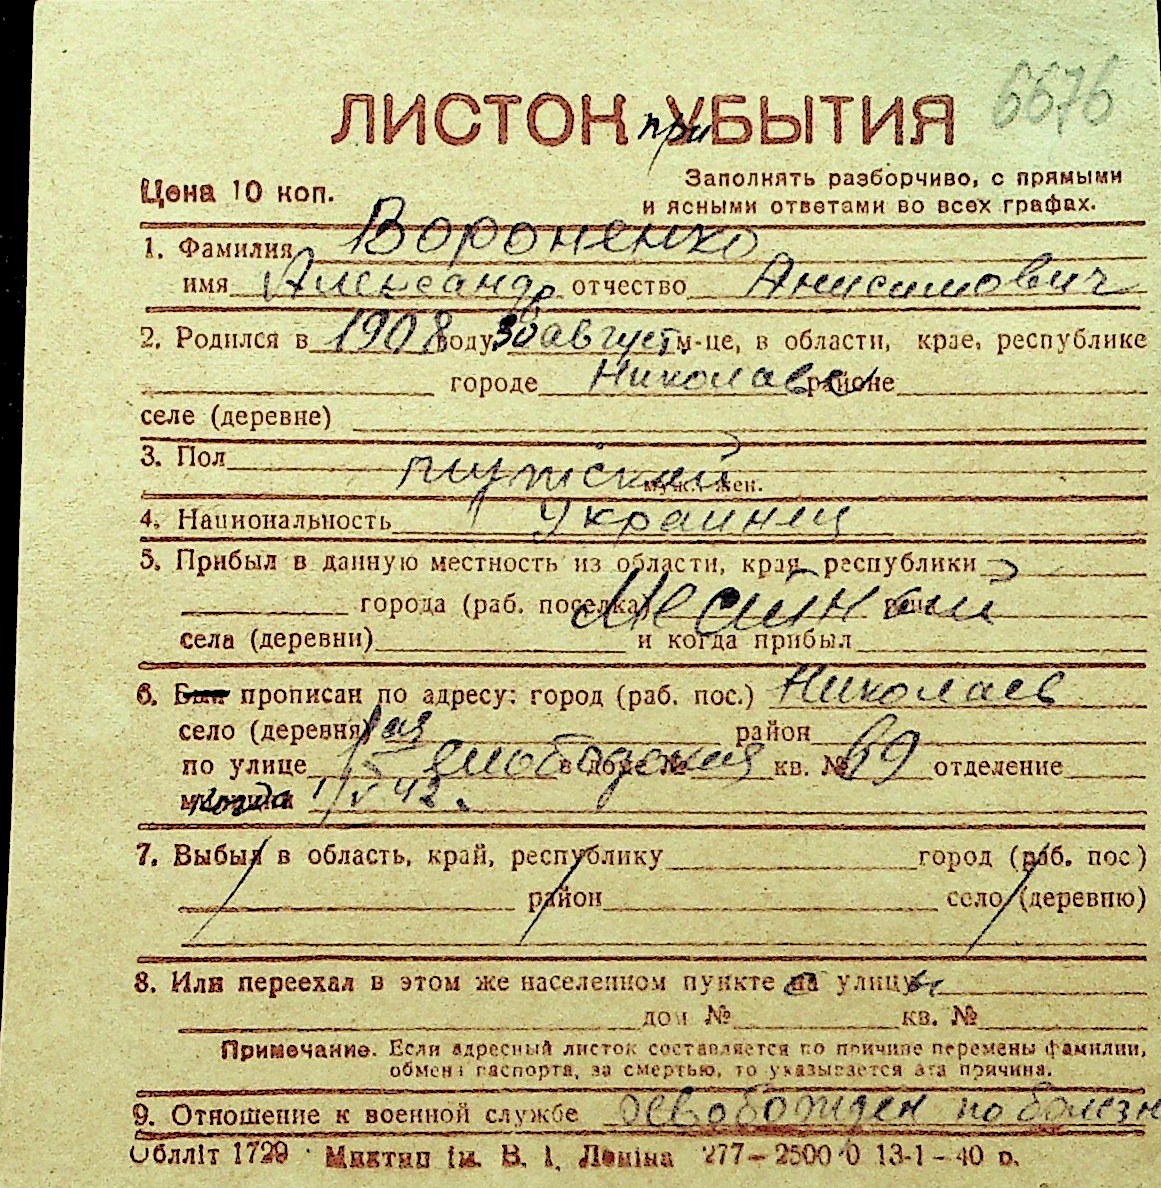 6676
ЛИСТОК при УБЫТИЯ
Цена 10 коп.
Заполнять разборчиво, с прямыми
и ясными ответами во всех графах.
1. Фамилия Вороненко
имя Александр отчество Анисимович
2. Родился в 1908 году 30 август м-це, в области, крае, республике
городе Николаеве районе
селе (деревне)
3. Пол мужской муж., жен.
4. Национальность Украинец
5. Прибыл в данную местность из области, края, республики
города (раб. поселка) Местный
села (деревни) и когда прибыл
6. Был прописан по адресу: город (раб. пос.) Николаев
село (деревня) район
по улице слободская в доме № кв. № 69 отделение
милиции когда 1/V 42.
7. Выбыл в область, край, республику город (раб. пос.)
район село (деревню)
8. Или переехал в этом же населенном пункте на улицу
дом № кв. №
Примечание. Если адресный листок составляется по причине перемены фамилии,
обмена паспорта, за смертью, то указывается эта причина.
9. Отношение к военной службе освобожден по болезн
Облліт 1729 Миктип ім. В. І. Леніна 277—25000 13-1-40 р.